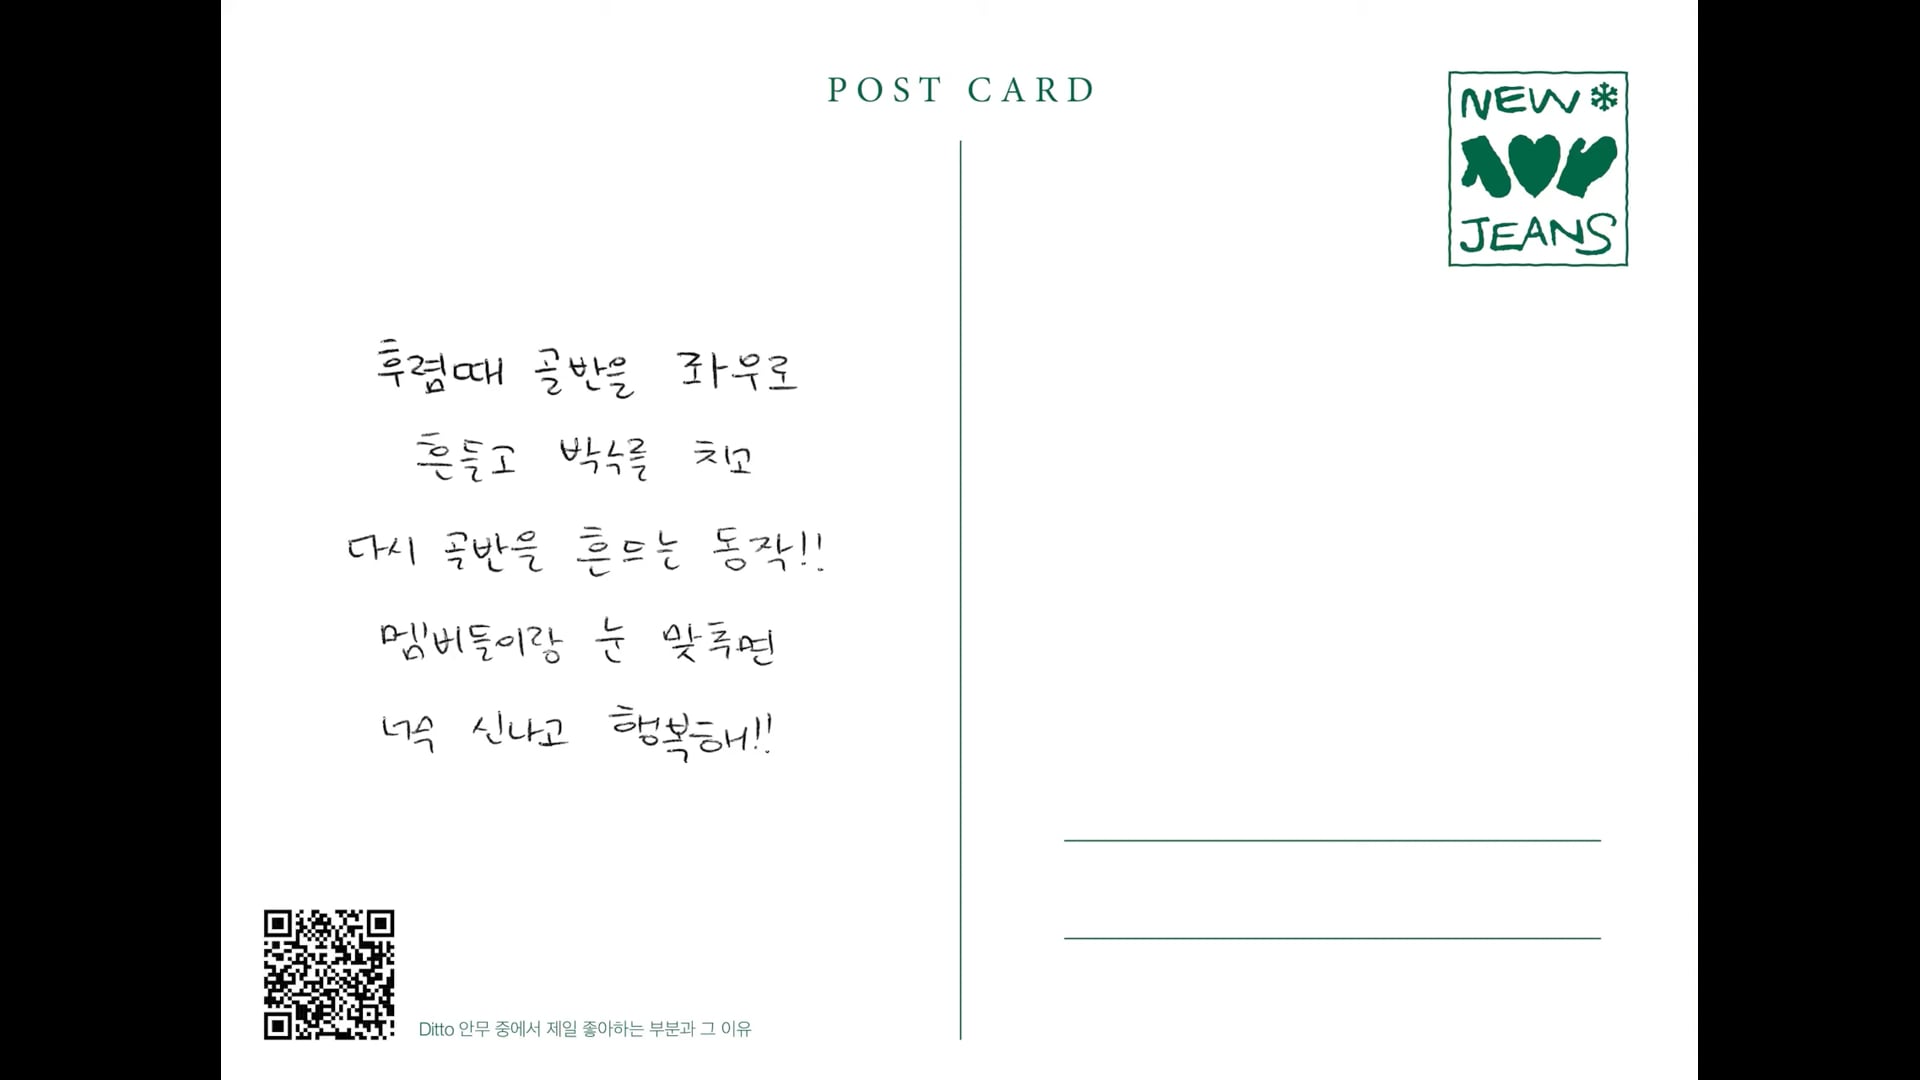 POST CARD
NEW
JEANS
후렴때 골반을 좌우로
흔들고 박수를 치고
다시 골반을 흔드는 동작!!
멤버들이랑 눈 맞추면
너무 신나고 행복해!!
Ditto 안무 중에서 제일 좋아하는 부분과 그 이유